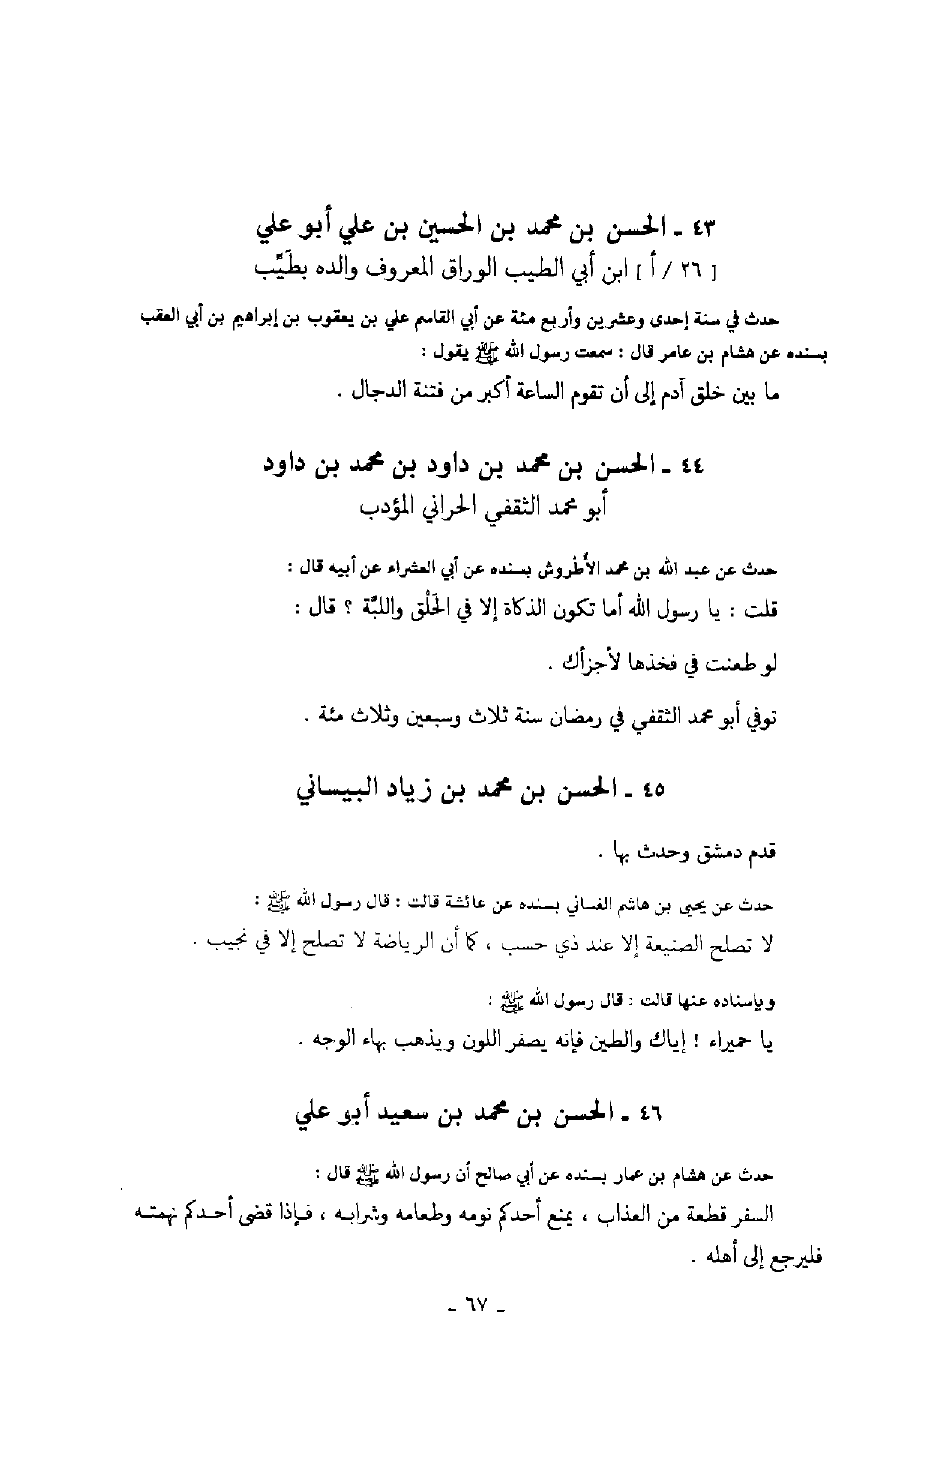 ٤٣ ـ الحسن بن محمد بن الحسين بن علي أبو علي
[ ٢٦ / أ ] ابن أبي الطيب الوراق المعروف والده بطَيِّب
حدث في سنة إحدى وعشرين وأربع مئة عن أبي القاسم علي بن يعقوب بن إبراهيم بن أبي العقب
بسنده عن هشام بن عامر قال : سمعت رسول الله ﷺ يقول :
ما بين خلق آدم إلى أن تقوم الساعة أكبر من فتنة الدجال .
٤٤ ـ الحسن بن محمد بن داود بن محمد بن داود
أبو محمد الثقفي الحراني المؤدب
حدث عن عبد الله بن محمد الأطروش بسنده عن أبي العشراء عن أبيه قال :
قلت : يا رسول الله أما تكون الذكاة إلا في الحَلْق واللبَّة ؟ قال :
لو طعنت في فخذها لأجزأك .
توفي أبو محمد الثقفي في رمضان سنة ثلاث وسبعين وثلاث مئة .
٤٥ ـ الحسن بن محمد بن زياد البيساني
قدم دمشق وحدث بها .
حدث عن يحيى بن هاشم الغساني بسنده عن عائشة قالت : قال رسول الله ﷺ :
لا تصلح الصنيعة إلا عند ذي حسب ، كما أن الرياضة لا تصلح إلا في نجيب .
وبإسناده عنها قالت : قال رسول الله ﷺ :
يا حميراء ! إياك والطين فإنه يصفر اللون ويذهب بهاء الوجه .
٤٦ ـ الحسن بن محمد بن سعيد أبو علي
حدث عن هشام بن عمار بسنده عن أبي صالح أن رسول الله ﷺ قال :
السفر قطعة من العذاب ، يمنع أحدكم نومه وطعامه وشرابه ، فإذا قضى أحدكم نهمته
فليرجع إلى أهله .
ـ ٦٧ ـ